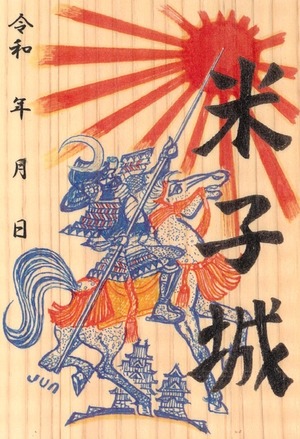 米子城
令和 年 月 日
JUN